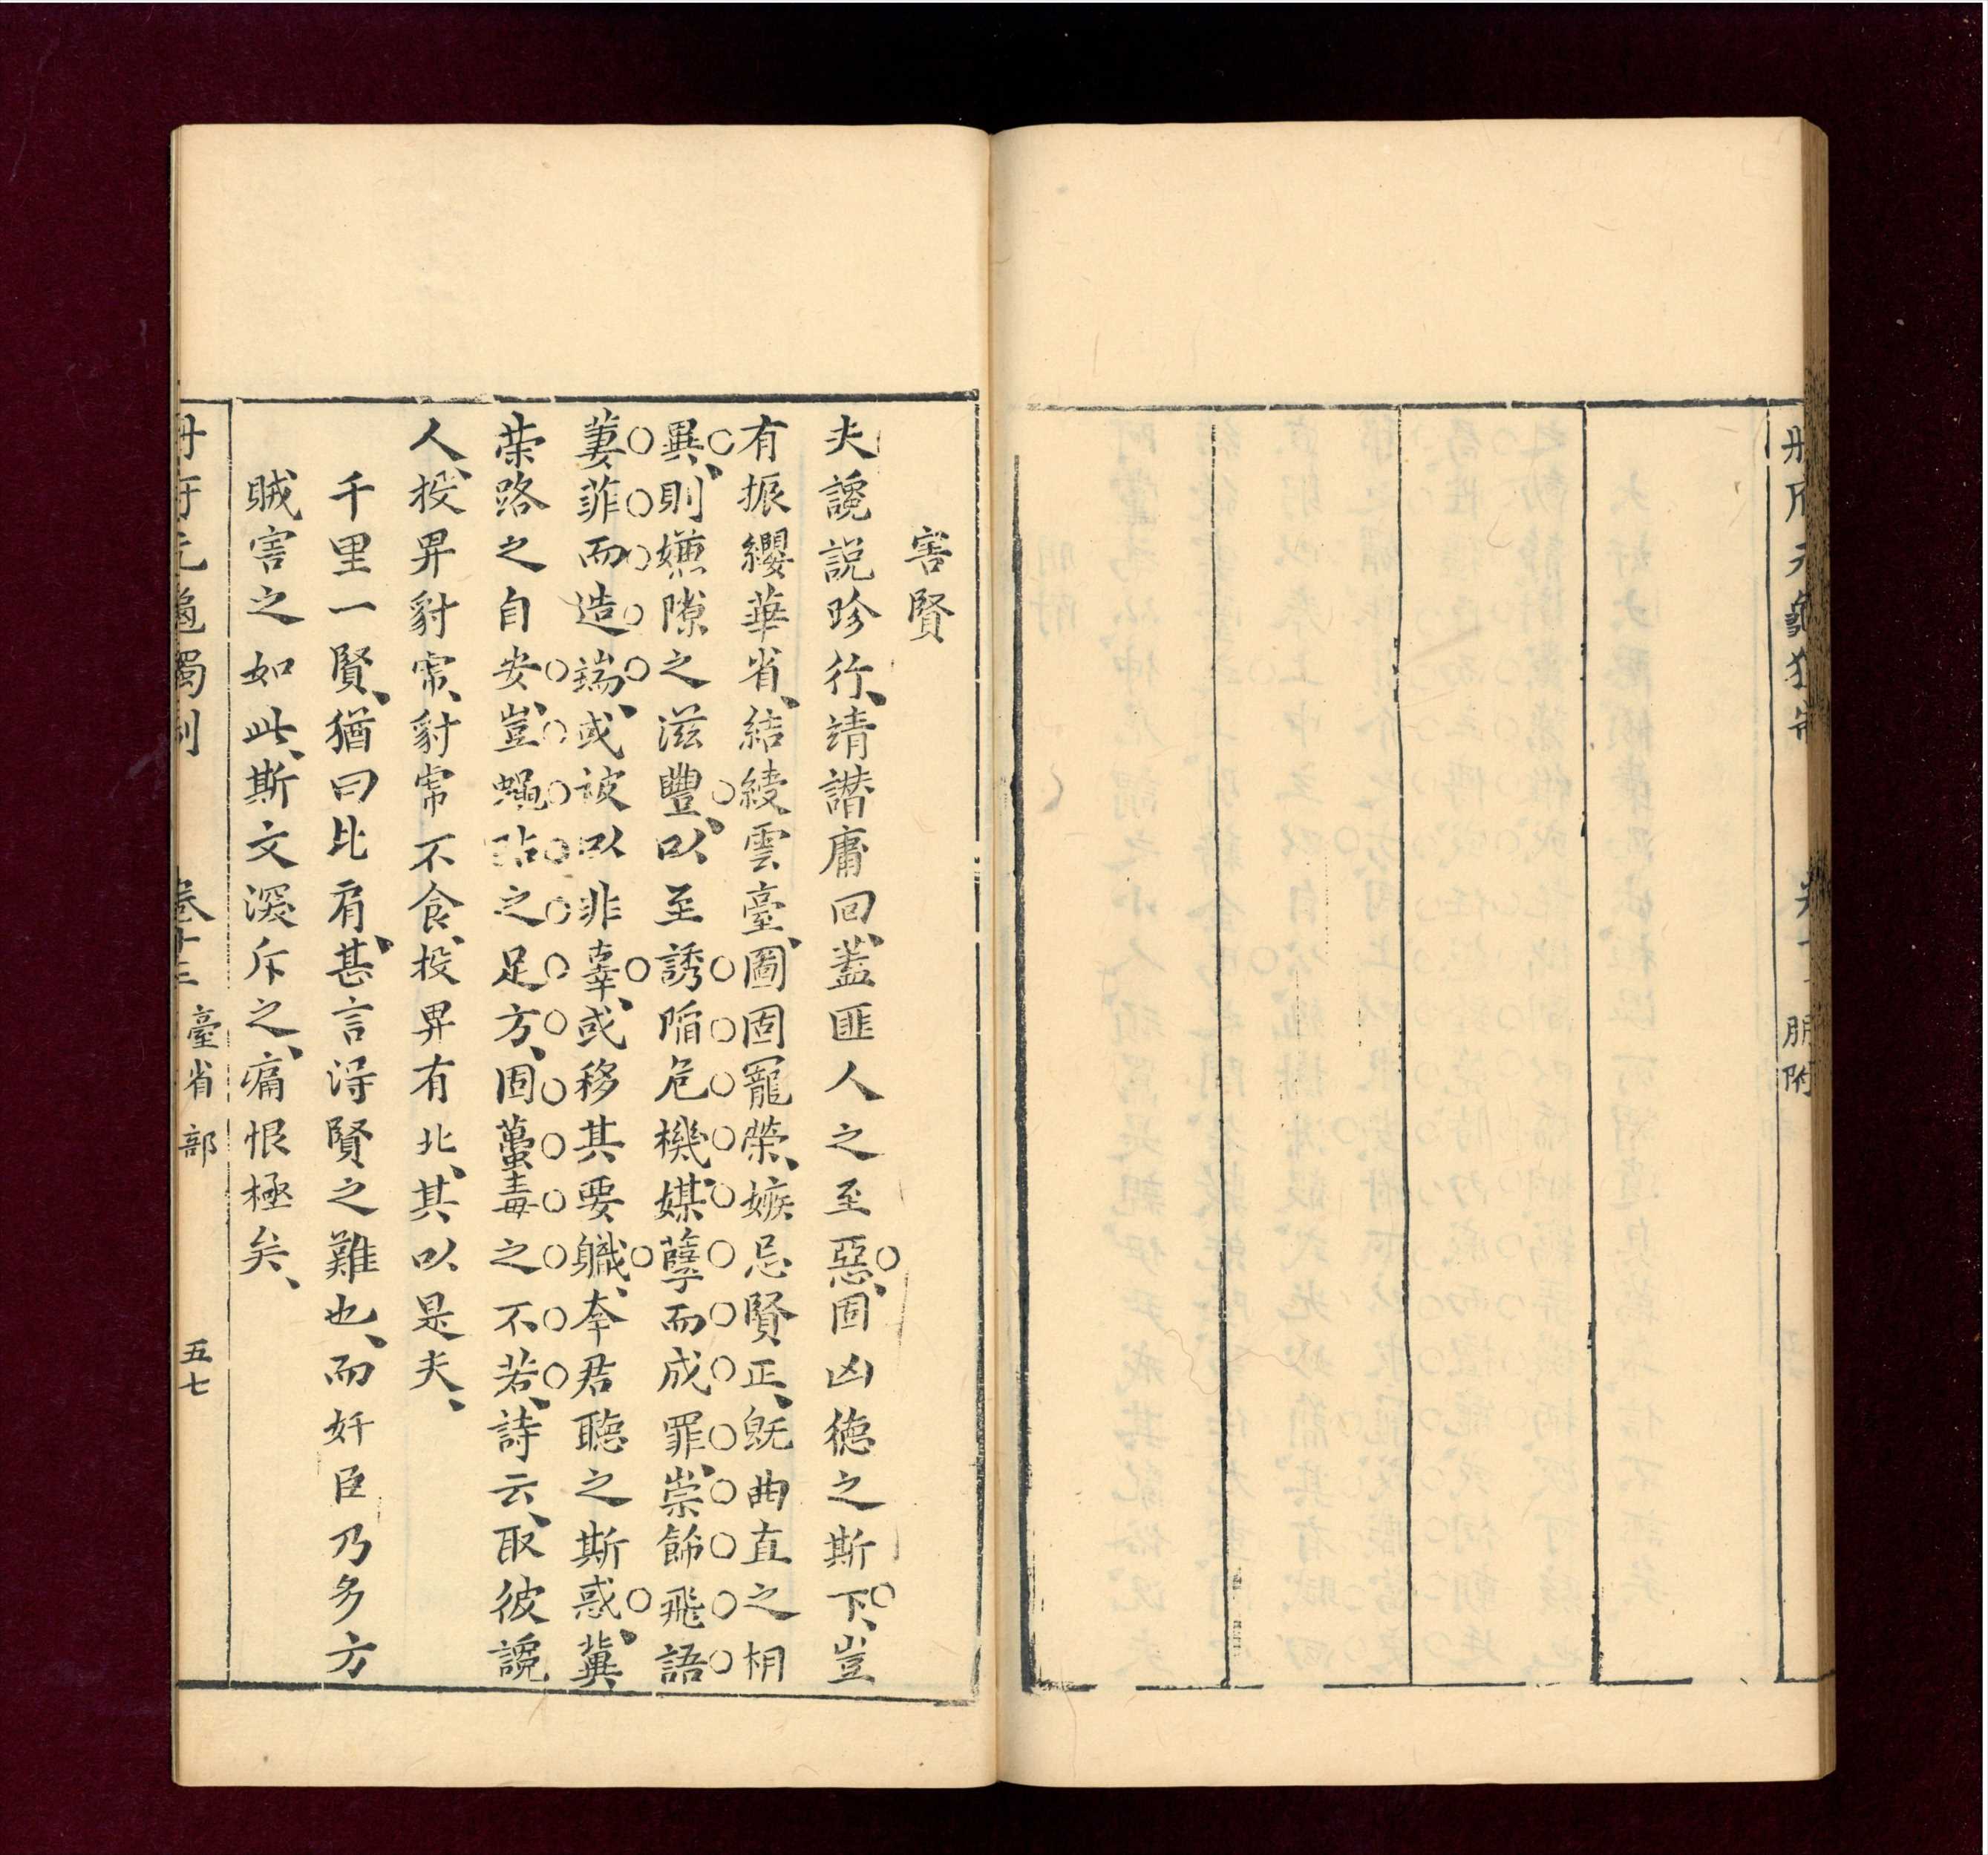 朋附
害賢
夫讒説殄行、靖譖庸回、蓋匪人之至惡、固凶德之斯下、豈
有振纓華省、結綬雲臺、圖固寵榮、嫉忌賢正、旣曲直之相
異、則嫌隙之滋豐、以至誘陷危機、媒孽而成罪、崇飾飛語
萋菲而造端、或诐以非辜、或移其要職、李君聽之斯惑、冀
荣路之自安、豈蠅玷之足方、固蠆毒之不若、詩云、取彼讒
人、投畀豺虎、豺虎不食、投畀有北、其以是夫、
千里一賢、猶曰比肩、甚言得賢之難也、而奸臣乃多方
賊害之如此、斯文深斥之、痛恨極矣、
冊府元龜獨制 卷十三 臺省部 五七